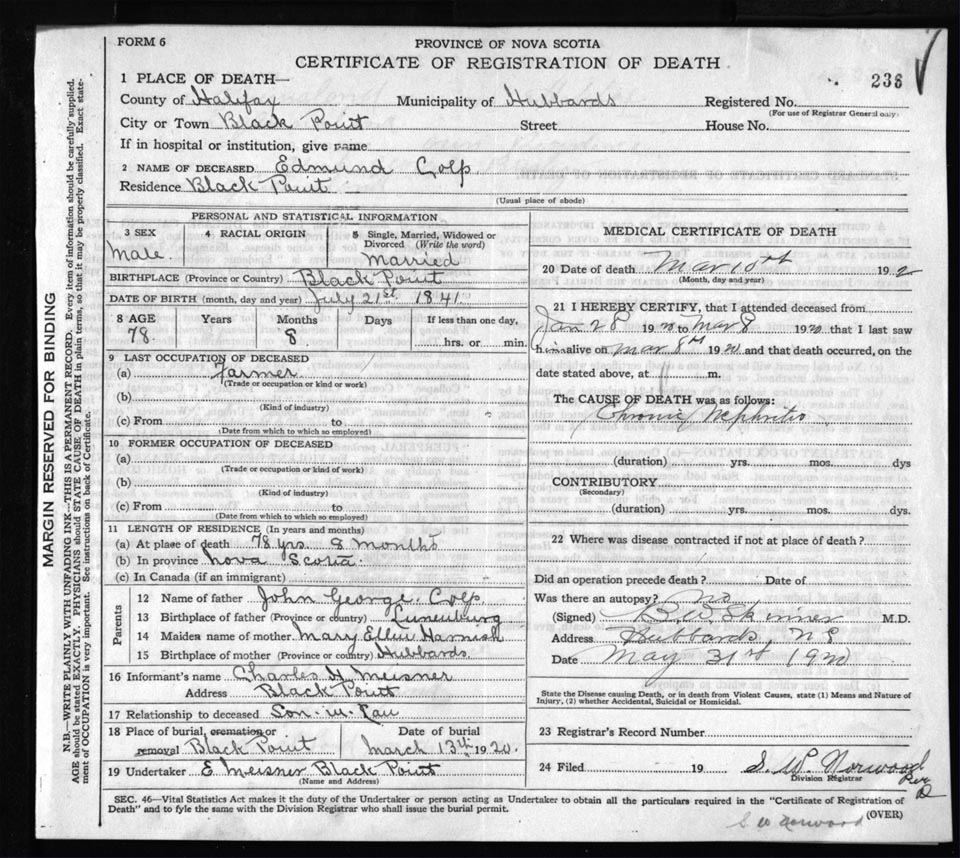 FORM 6
PROVINCE OF NOVA SCOTIA
CERTIFICATE OF REGISTRATION OF DEATH
236
1 PLACE OF DEATH—
County of Halifax Municipality of Hubbards Registered No.
(For use of Registrar General only)
City or Town Black Point Street House No.
If in hospital or institution, give name
2 NAME OF DECEASED Edmund Colp
Residence Black Point
(Usual place of abode)
PERSONAL AND STATISTICAL INFORMATION
3 SEX 4 RACIAL ORIGIN 5 Single, Married, Widowed or Divorced (Write the word)
Male. Married
BIRTHPLACE (Province or Country) Black Point
DATE OF BIRTH (month, day and year) July 21st 1841.
8 AGE Years Months Days If less than one day,
78. 8 hrs. or min.
9 LAST OCCUPATION OF DECEASED
(a) Farmer
(Trade or occupation or kind of work)
(b)
(Kind of industry)
(c) From to
(Date from which to which so employed)
10 FORMER OCCUPATION OF DECEASED
(a)
(Trade or occupation or kind of work)
(b)
(Kind of industry)
(c) From to
(Date from which to which so employed)
11 LENGTH OF RESIDENCE (In years and months)
(a) At place of death 78 yrs. 8 months
(b) In province Nova Scotia.
(c) In Canada (if an immigrant)
Parents
12 Name of father John George Colp.
13 Birthplace of father (Province or country) Lunenburg
14 Maiden name of mother Mary Ellen Harnish
15 Birthplace of mother (Province or country) Hubbards.
16 Informant's name Charles H. Meisner
Address Black Point
17 Relationship to deceased Son-in-Law
18 Place of burial, cremation or Date of burial
removal Black Point March 13th 1920.
19 Undertaker E Meisner Black Point
(Name and Address)
MEDICAL CERTIFICATE OF DEATH
20 Date of death Mar 10th 192
(Month, day and year)
21 I HEREBY CERTIFY, that I attended deceased from
Jan 28 1920 to Mar 8 1920 that I last saw
him alive on Mar 8th 1920 and that death occurred, on the
date stated above, at m.
The CAUSE OF DEATH was as follows:
Chronic Nephritis
(duration) yrs. mos. dys
CONTRIBUTORY
(Secondary)
(duration) yrs. mos. dys.
22 Where was disease contracted if not at place of death?
Did an operation precede death? Date of
Was there an autopsy? no
(Signed) B. W. Skinner M.D.
Address Hubbards, NS
Date May 31st 1920
State the Disease causing Death, or in death from Violent Causes, state (1) Means and Nature of
Injury, (2) whether Accidental, Suicidal or Homicidal.
23 Registrar's Record Number
24 Filed 19 S. W. Norwood
Division Registrar
Per D
SEC. 46—Vital Statistics Act makes it the duty of the Undertaker or person acting as Undertaker to obtain all the particulars required in the "Certificate of Registration of
Death" and to fyle the same with the Division Registrar who shall issue the burial permit.
(OVER)
S W Norwood
MARGIN RESERVED FOR BINDING
N.B.—WRITE PLAINLY WITH UNFADING INK—THIS IS A PERMANENT RECORD. Every item of information should be carefully supplied.
AGE should be stated EXACTLY. PHYSICIANS should STATE CAUSE OF DEATH in plain terms, so that it may be properly classified. Exact state-
ment of OCCUPATION is very important. See instructions on back of Certificate.